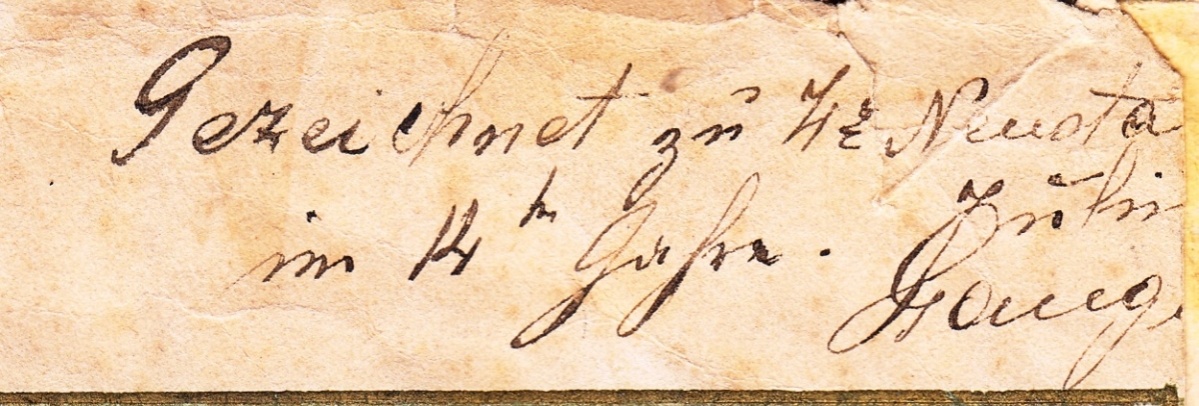 Gezeichnet zu W: Neusta
im 14ᵗᵉⁿ Jahre. Juliu
Lange